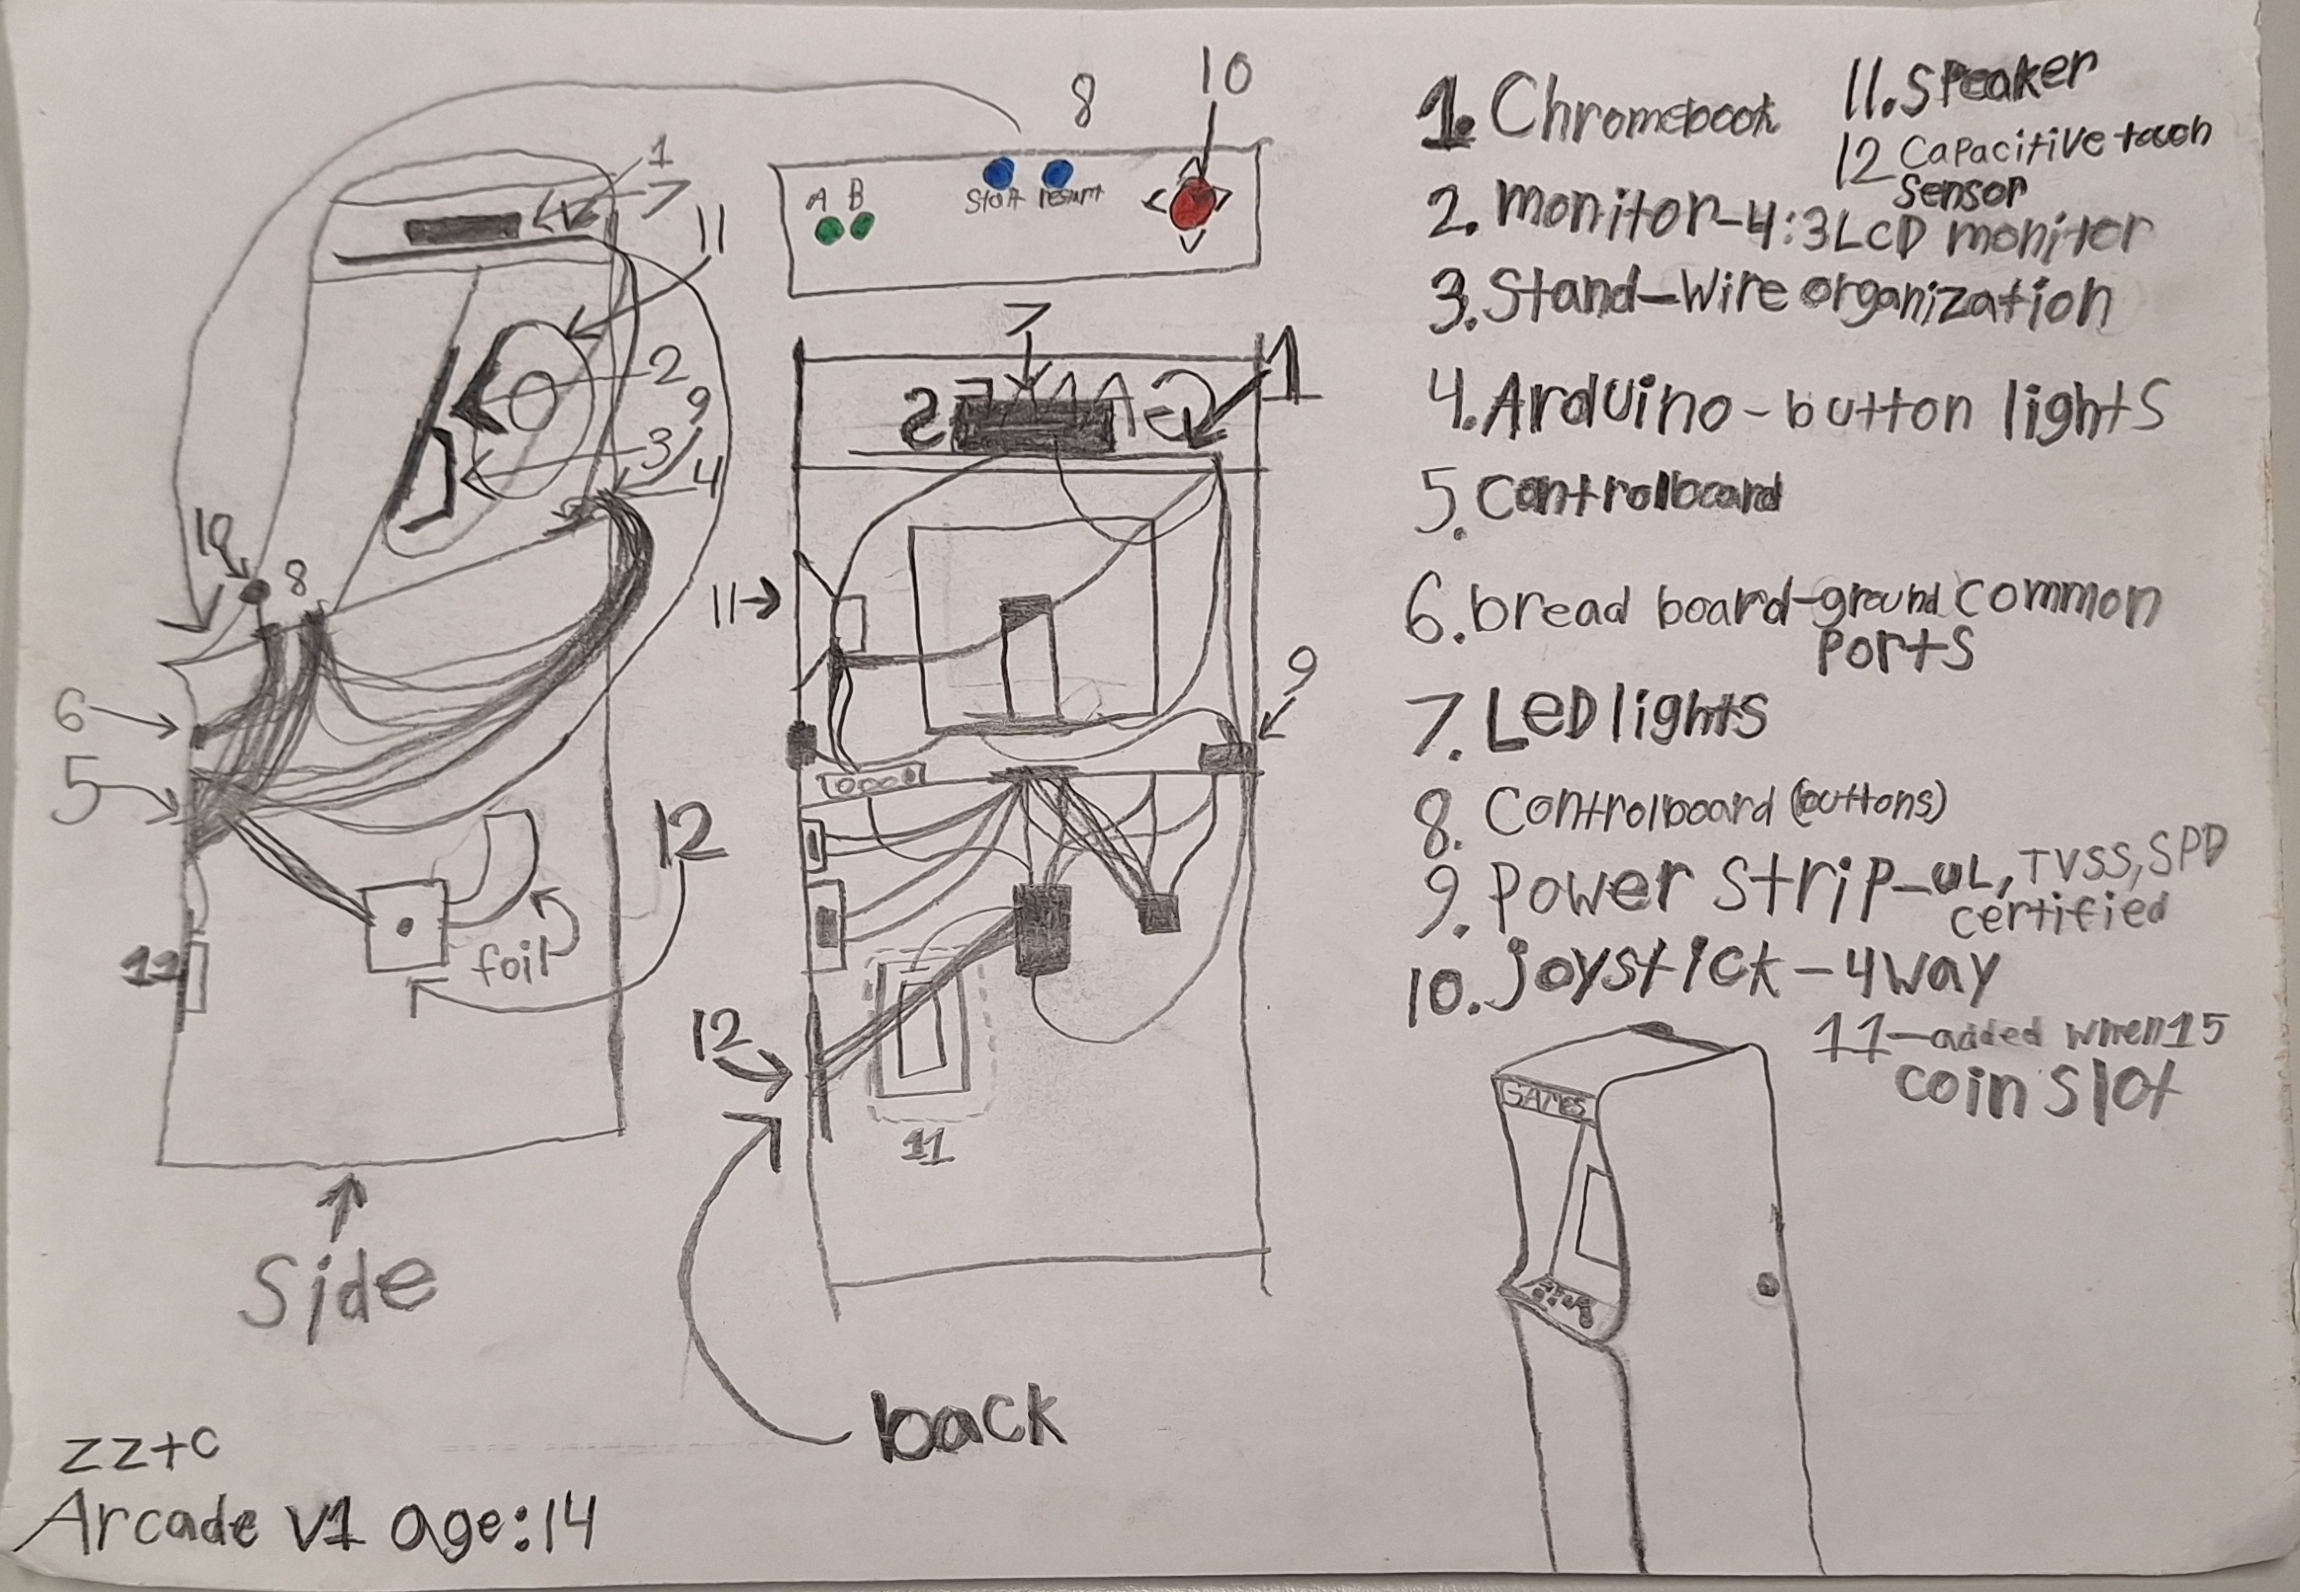 1. Chromebook
2. monitor-4:3 LCD moniter
3. Stand-Wire organization
4. Arduino-button lights
5. Controlboard
6. bread board-ground common
Ports
7. LED lights
8. Controlboard (buttons)
9. Power strip-UL, TVSS, SPD
certified
10. joystick-4way
11. Speaker
12 Capacitive touch
Sensor
11-added when 15
coin slot
8
10
A B
Start restart
1
7
11
2
9
3
4
10
8
6
5
12
foil
11
Side
7
1
11
9
12
11
back
zz+c
Arcade v1 age:14